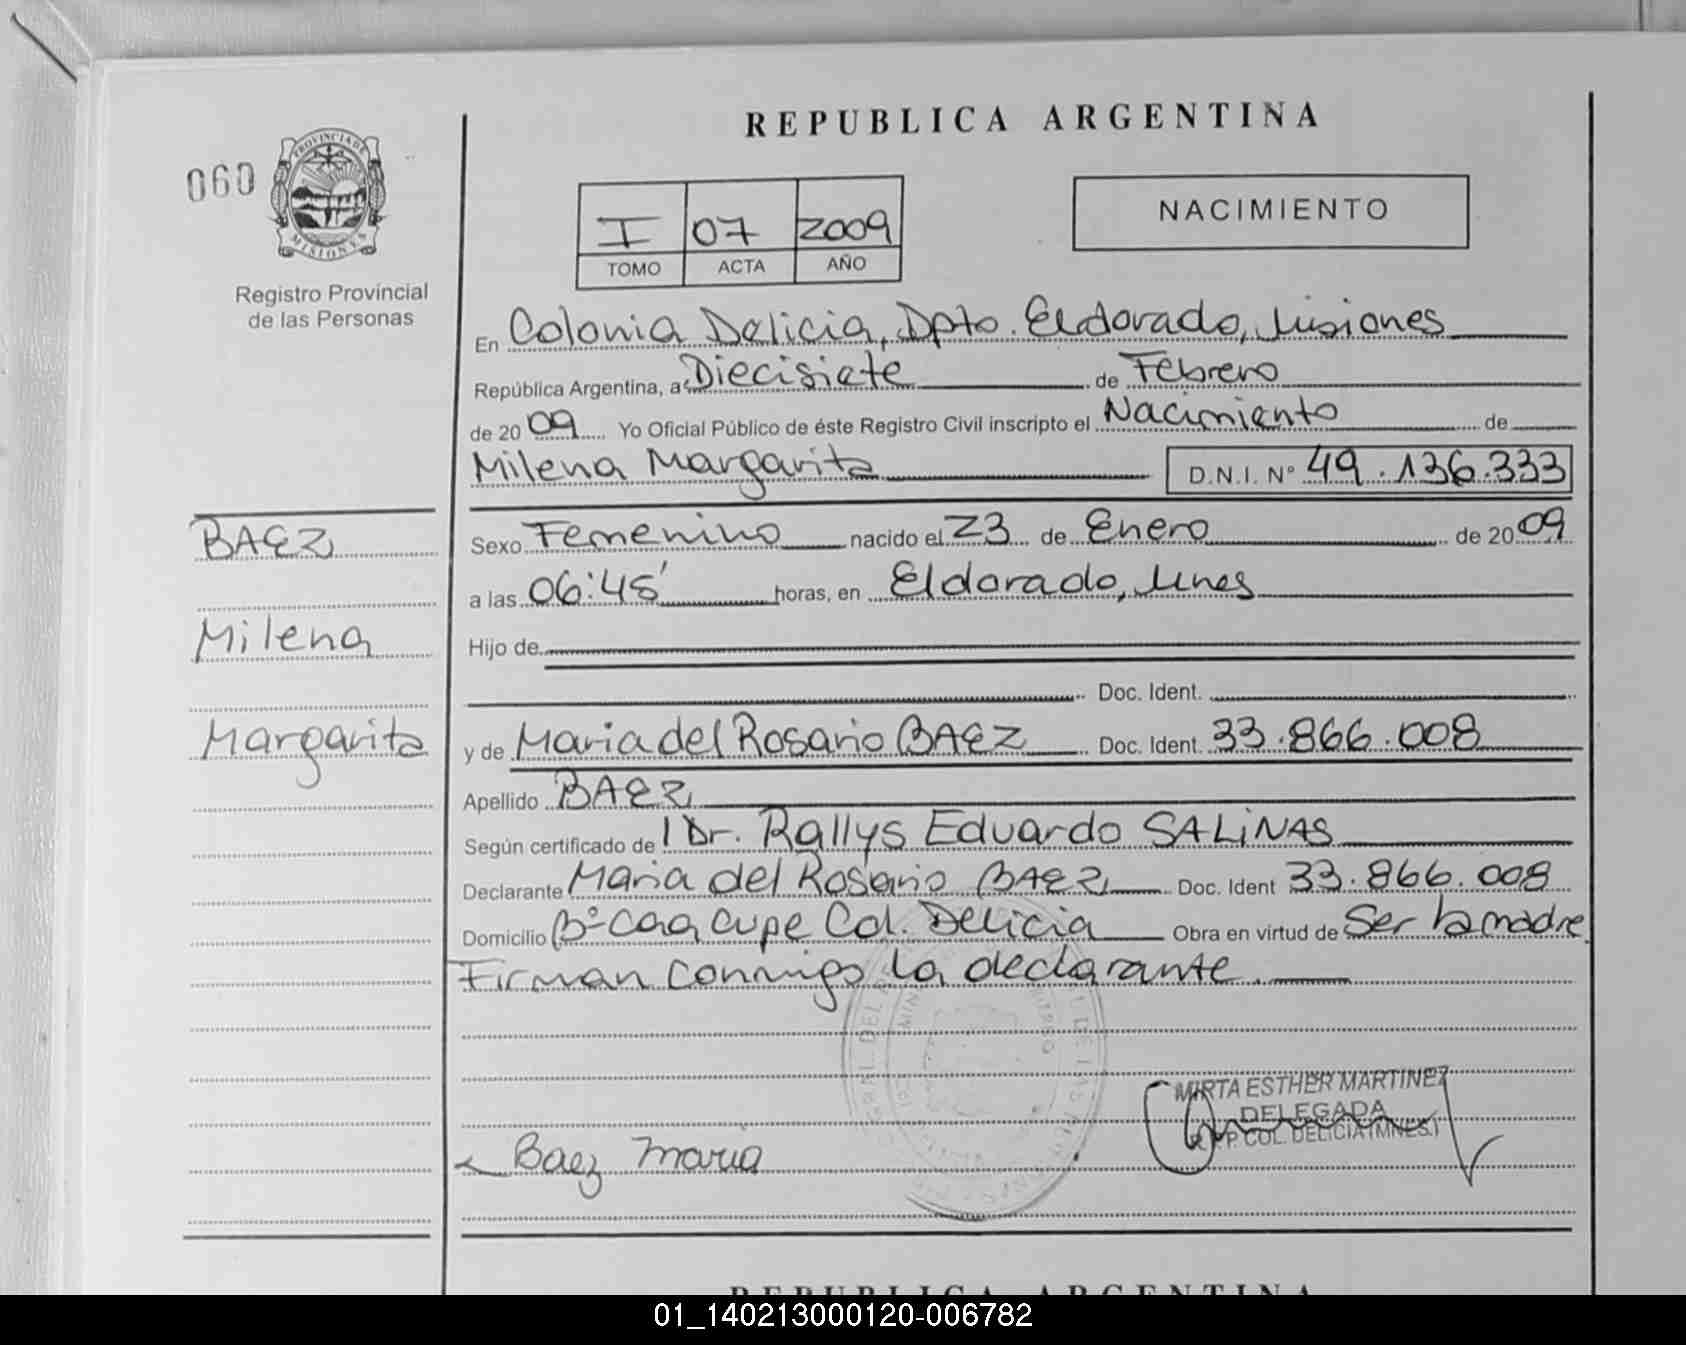 REPUBLICA ARGENTINA
060
PROVINCIA DE
MISIONES
Registro Provincial
de las Personas
I 07 2009
TOMO ACTA AÑO
NACIMIENTO
En Colonia Delicia, Dpto. Eldorado, Misiones
República Argentina, a Diecisiete de Febrero
de 20 09 Yo Oficial Público de éste Registro Civil inscripto el Nacimiento de
Milena Margarita D.N.I. Nº 49.136.333
BAEZ
Milena
Margarita
Sexo Femenino nacido el 23 de Enero de 20 09
a las 06:45' horas, en Eldorado, Mnes
Hijo de
Doc. Ident.
y de Maria del Rosario BAEZ Doc. Ident. 33.866.008
Apellido BAEZ
Según certificado de l Dr. Rallys Eduardo SALiNAS
Declarante Maria del Rosario BAEZ Doc. Ident 33.866.008
Domicilio Bº Caacupe Col. Delicia Obra en virtud de Ser la madre
Firman conmigo la declarante.
MIRTA ESTHER MARTINEZ
DELEGADA
R.P.P. COL. DELICIA (MNES.)
Baez maria
REPUBLICA ARGENTINA
01_140213000120-006782